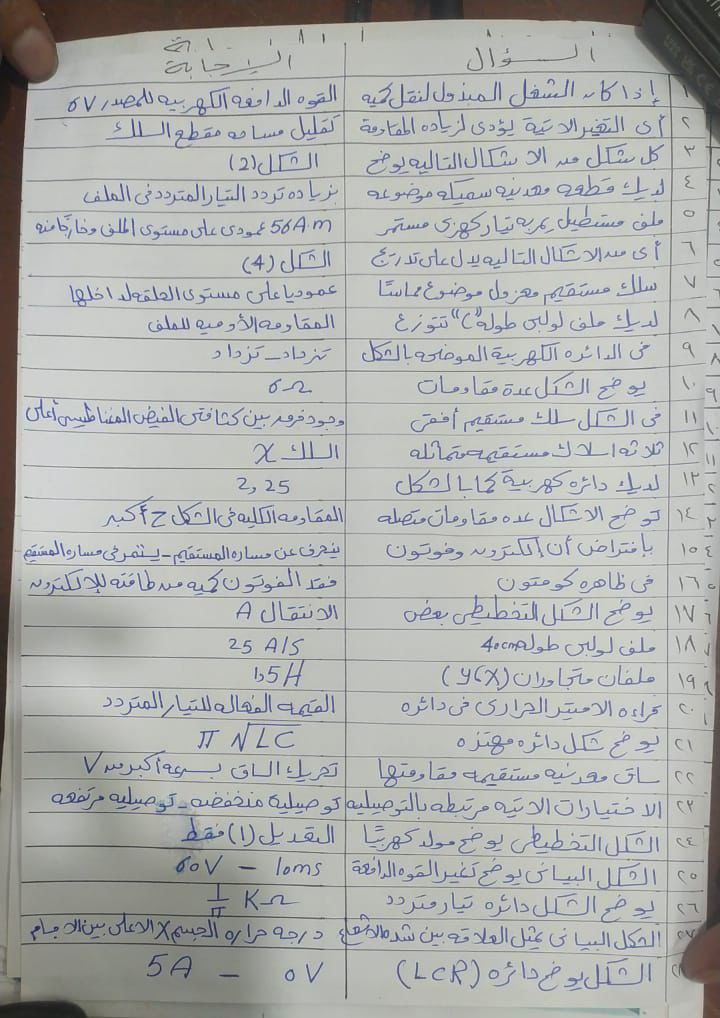 السؤال الإجابة
١ إذا كان الشغل المبذول لنقل كمية القوه الدافعه الكهربيه للمصدر 6V
٢ أى التغير الاتية يؤدى لزياده المقاومة تقليل مساحه مقطع السلك
٣ كل شكل من الاشكال التاليه يوضح الشكل (2)
٤ لديك قطعه معدنيه سميكه موضوعه بزياده تردد التيار المتردد فى الملف
٥ ملف مستطيل يمر به تيار كهربى مستمر 56A.m عمودى على مستوى الملف وخارجًا منه
٦ أى من الاشكال التاليه يدل على تدريج الشكل (4)
٧ سلك مستقيم معزول موضوع مماسًا عموديا على مستوى الحلقه لداخلها
٨ لديك ملف لولبى طوله "ل" تتوزع المقاومه الأوميه للملف
٩ فى الدائره الكهربية الموضحه بالشكل تزداد – تزداد
١٠ يوضح الشكل عدة مقاومات 6Ω
١١ فى الشكل سلك مستقيم أفقى وجود فرق بين كثافتى الفيض المغناطيسى أعلى
١٢ ثلاثه اسلاك مستقيمه متماثله السلك X
١٣ لديك دائره كهربية كما بالشكل 2,25
١٤ توضح الاشكال عده مقاومات متصله المقاومه الكليه فى الشكل ج أكبر
١٥ بإفتراض أن إلكترون وفوتون ينحرف عن مساره المستقيم – يستمر فى مساره المستقيم
١٦ فى ظاهره كومتون فقد الفوتون كميه من طاقته للإلكترون
١٧ يوضح الشكل التخطيطى بعض الانتقال A
١٨ ملف لولبى طوله 40cm 25 A/S
١٩ ملفان متجاوران (X,y) 1,5H
٢٠ قراءه الاميتر الحرارى فى دائره القيمه الفعاله للتيار المتردد
٢١ يوضح شكل دائره مهتزه π √LC
٢٢ ساق معدنيه مستقيمه مقاومتها تحريك الساق بسرعه أكبر من V
٢٣ الاختيارات الاتيه مرتبطه بالتوصيليه توصيلية منخفضه – توصيليه مرتفعه
٢٤ الشكل التخطيطى يوضح مولد كهربيًا التعديل (1) فقط
٢٥ الشكل البيانى يوضح تغير القوه الدافعة 60V – 10ms
٢٦ يوضح الشكل دائره تيار متردد 1/π KΩ
٢٧ الشكل البيانى يمثل العلاقه بين شده الاشعاع درجه حراره الجسم X الاعلى بين الاجسام
٢٨ الشكل يوضح دائره (LCR) 5A – 0V